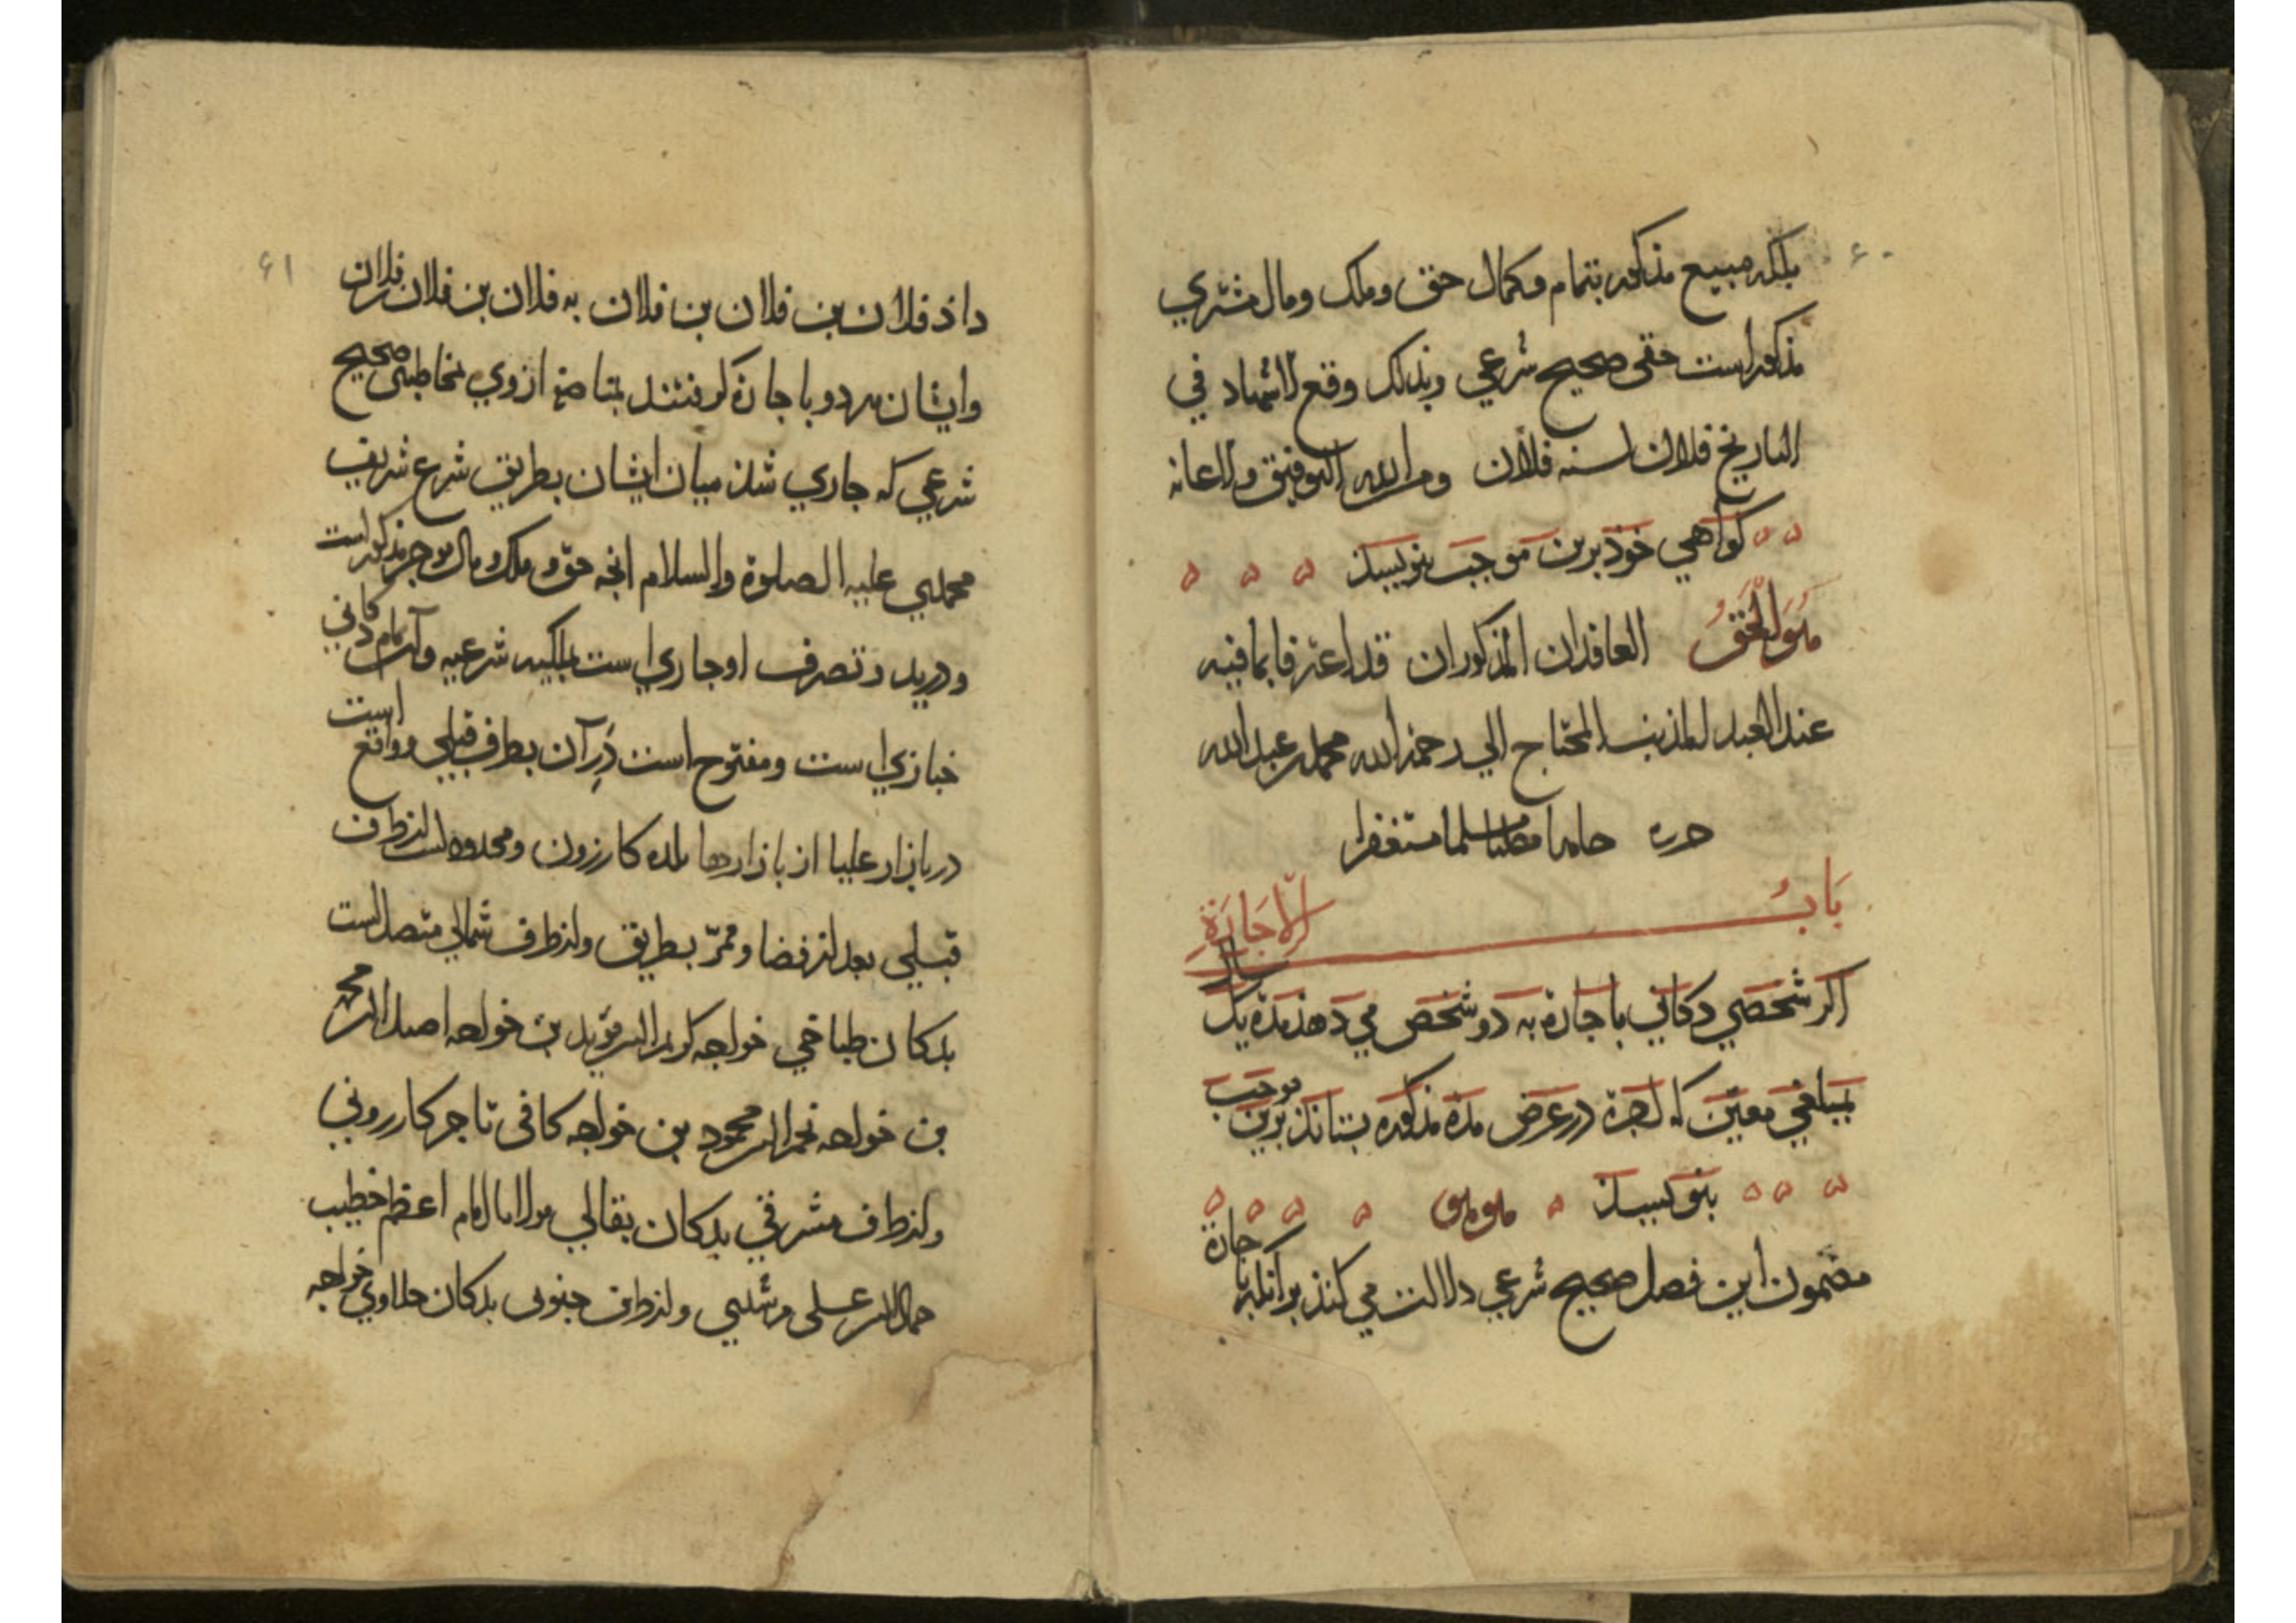 ۶۰
بلکه مبیع مذکور بتمام وکمال حق وملک ومال مشتري
مذکور است حقی صحیح شرعي وبذلک وقع الاشهاد في
التاریخ فلان لسنه فلان ومن الله التوفیق والاعانه
کواهي خوذ برین موجب بنویسند
هو الحق العاقدان المذکوران قد اعترفا بما فیه
عند العبد المذنب المحتاج الي رحمة الله محمد بن عبدالله
حرره حامدا مصلیا مسلما مستغفرا
بَابُ الاِجَارَةِ
اکر شخصي دکاني باجارة به دو شخص مي دهد مدة یک سال
بمبلغي معین که اجرة در عرض مدة مذکوره بستانند برین موجب
بنویسند هو هو
مضمون این فصل صحیح شرعي دلالت مي کند بر آنکه باجارة
۶۱
داذ فلان بن فلان بن فلان به فلان بن فلان بن فلان
وایشان هر دو باجارة کرفتند از وي مخاطبتی صحیح
شرعي که جاري شد میان ایشان بطریق شرع شریف
محمدي علیه الصلوة والسلام انچه حق و ملک و مال موجر مذکور است
ودر ید و تصرف او جاري است بملکیه شرعیه وآن تمام دکاني
خبازي است ومفتوح است درِ آن بطرف قبلي وواقع است
در بازار علیا از بازارها بلده کازرون ومحدود است از طرف
قبلي بعد از فضا وممرّ بطریق واز طرف شمالي متصل است
بدکان طباخي خواجه مؤید بن خواجه اصیل الدین محمد
بن خواجه نجم الدین محمود بن خواجه کافی تاجر کازروني
واز طرف مشرقي بدکان بقالي مولانا امام اعظم خطیب
جمال الدین علی مرشدي واز طرف جنوبی بدکان حلاوي خواجه